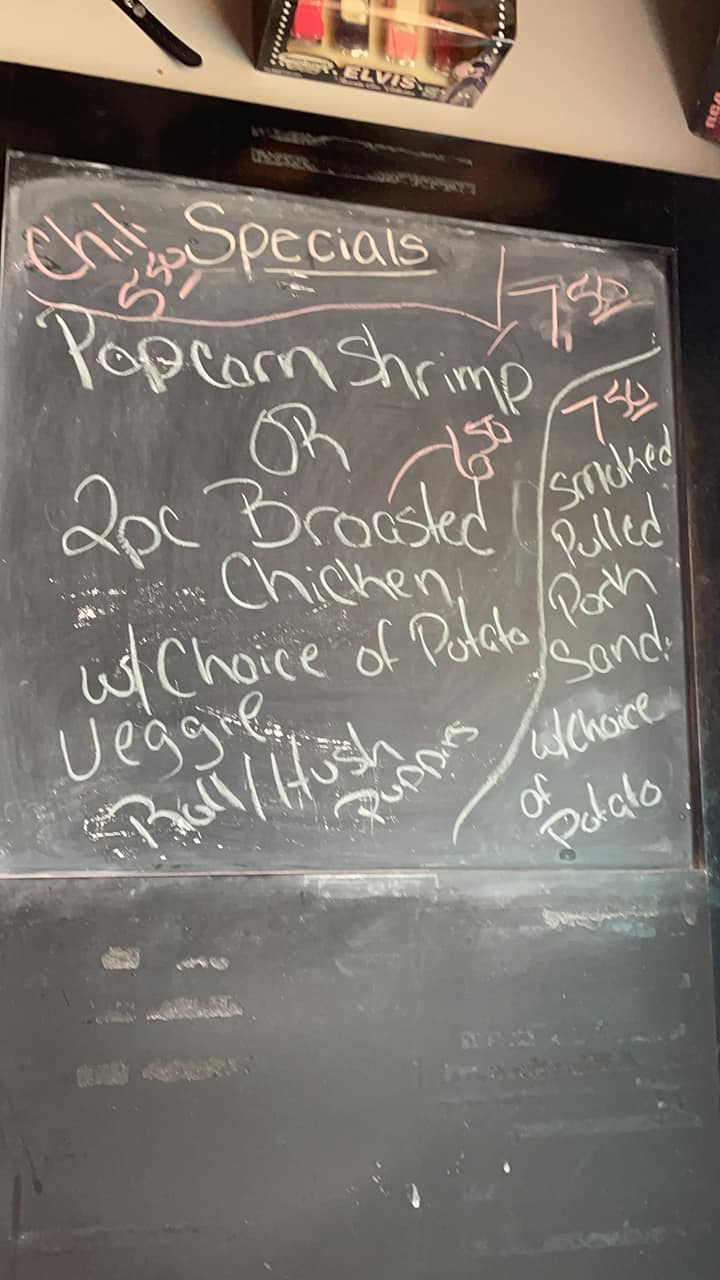 ELVIS
RCA
Specials
Chili
5.40
7.50
Popcorn Shrimp
OR
6.50
2pc Broasted
Chicken,
w/Choice of Potato
Veggie
Roll/Hush
Puppies
7.50
Smoked
Pulled
Pork
Sand.
w/Choice
of
Potato